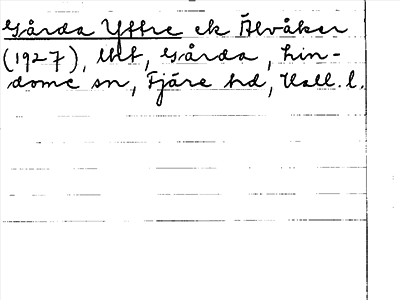 Gårda Yttre ek Älvåker
(1927), tht, Gårda, Lin-
dome sn, Fjäre hd, Hall. l.